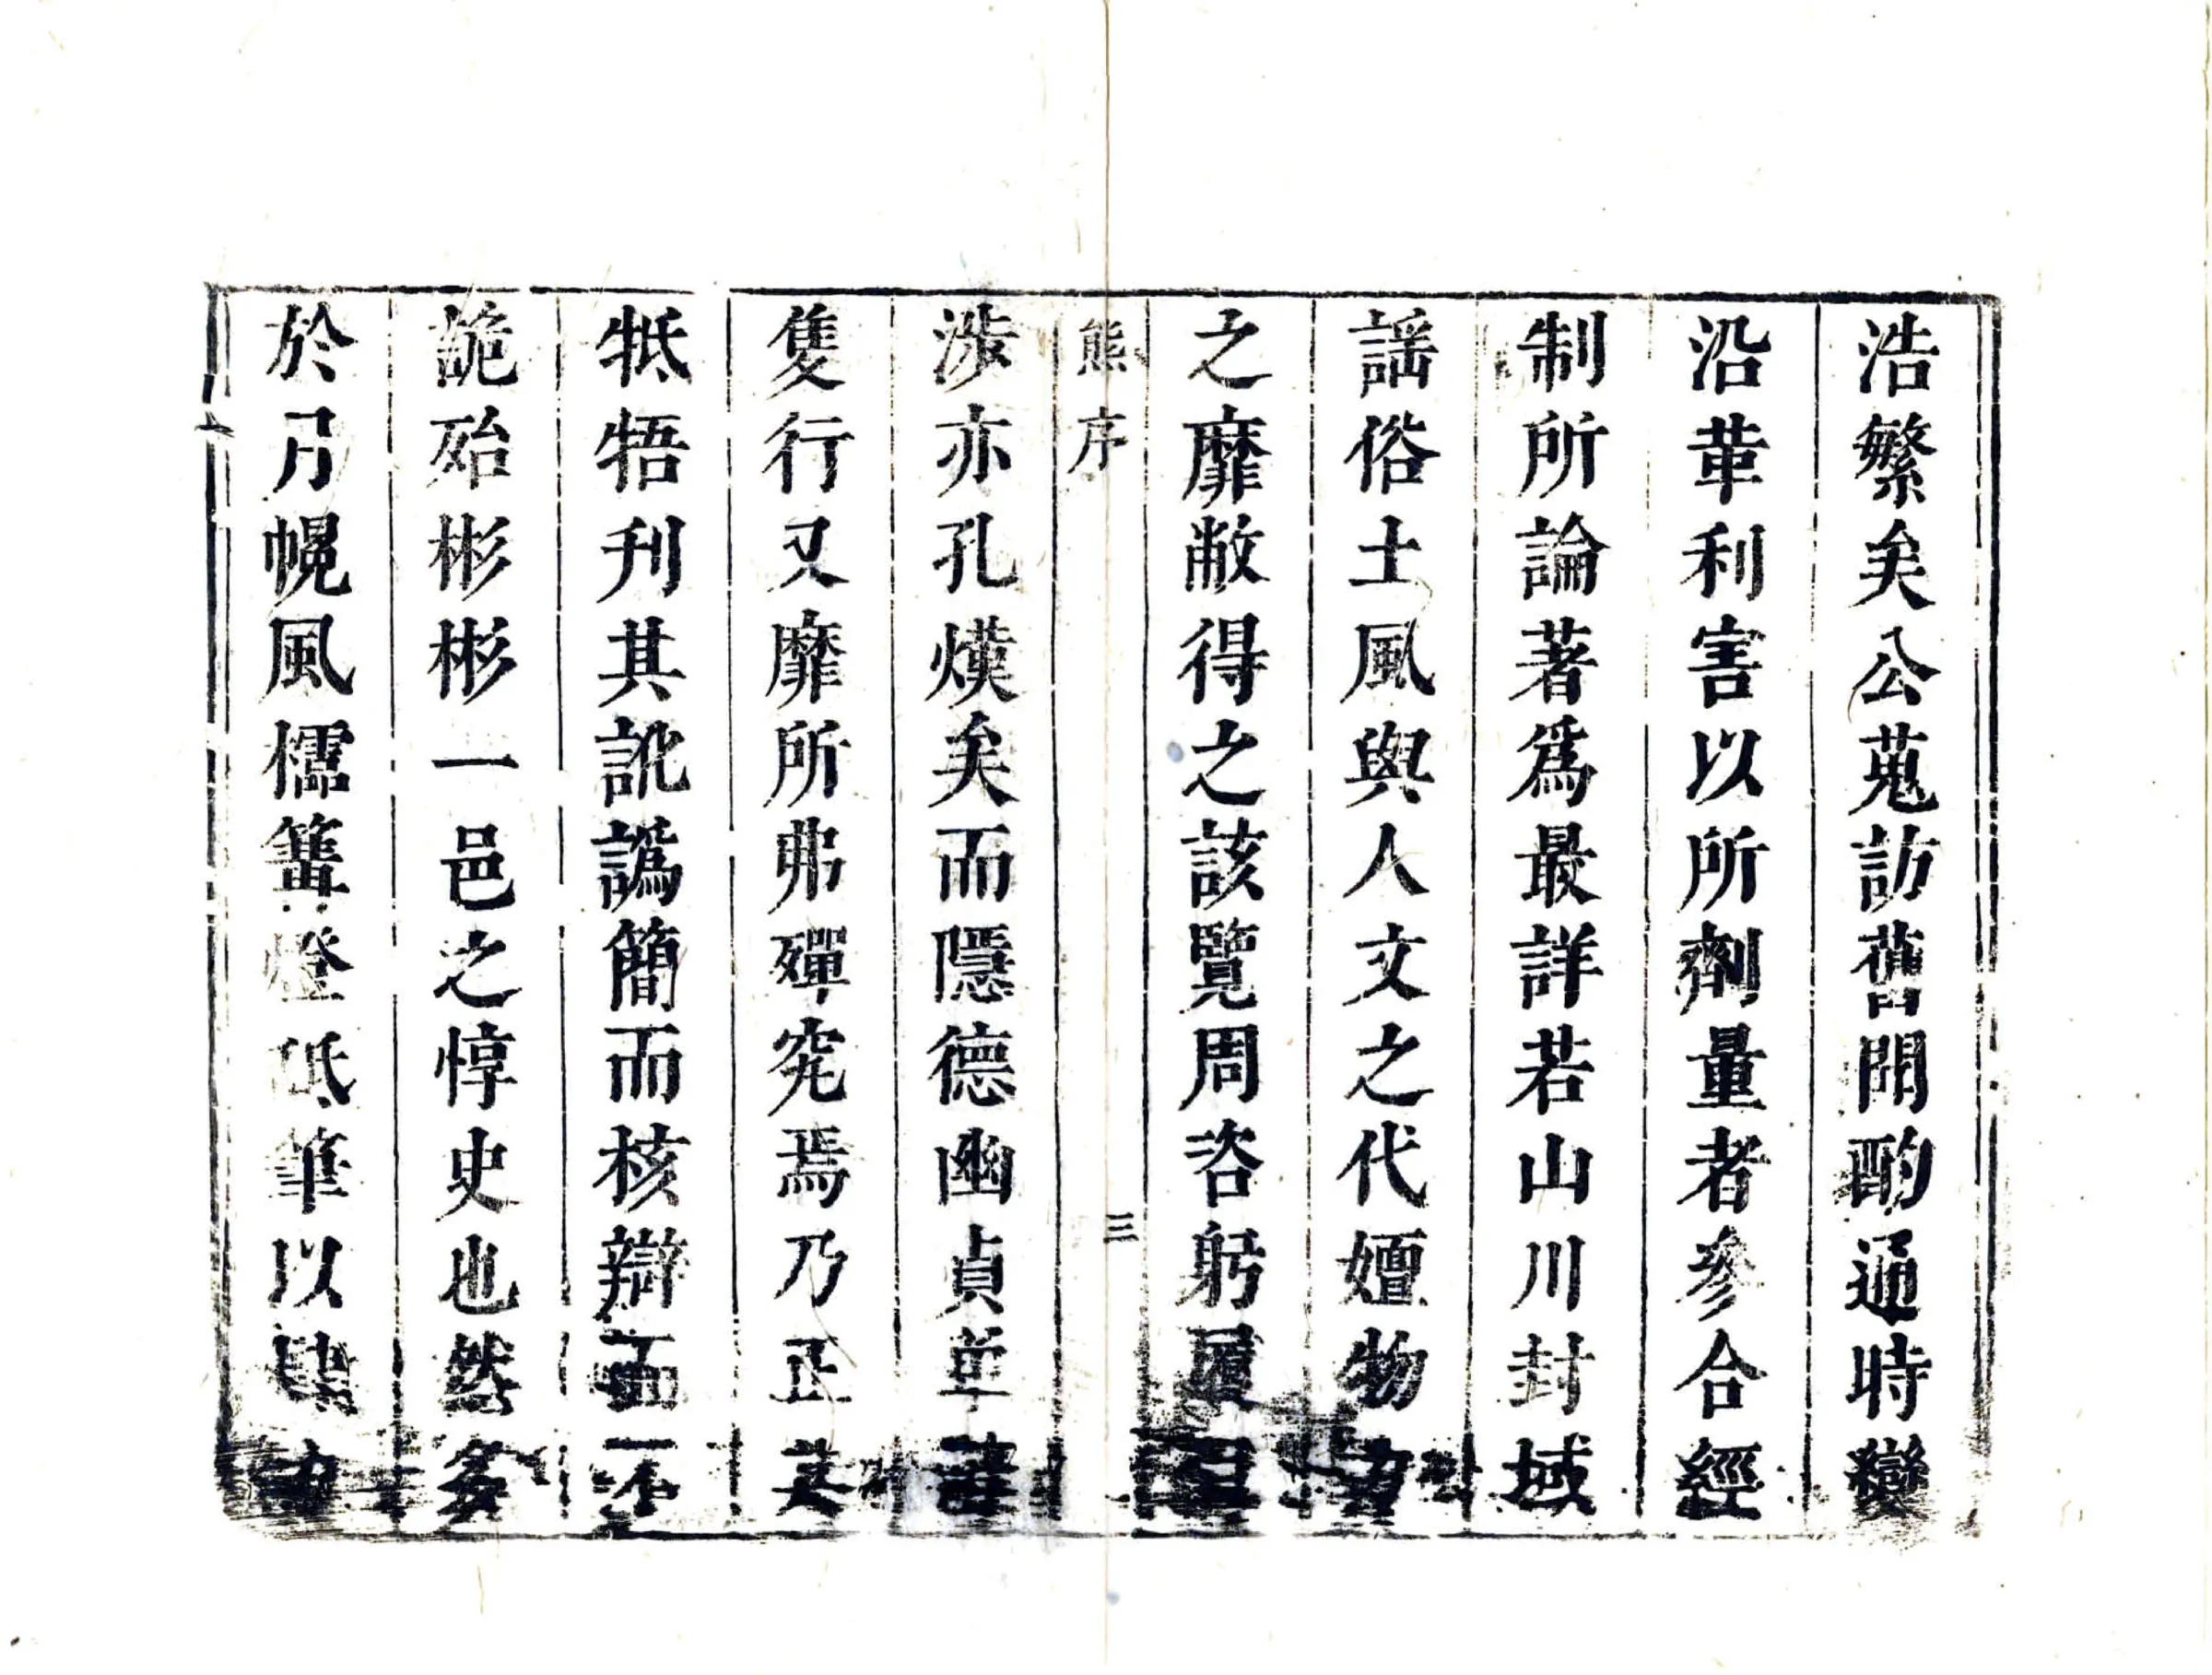 浩繁矣公蒐訪舊聞酌通時變
沿革利害以所劑量者參合經
制所論著爲最詳若山川封域
謡俗土風與人文之代嬗物
之靡敝得之該覽周咨躬履
熊序
三
涉亦孔熯矣而隱德幽貞單
隻行又靡所弗殫究焉乃正其
牴牾刋其訛譌簡而核辯而不
詭殆彬彬一邑之惇史也然多
於月幌風櫺篝燈泜筆以肆